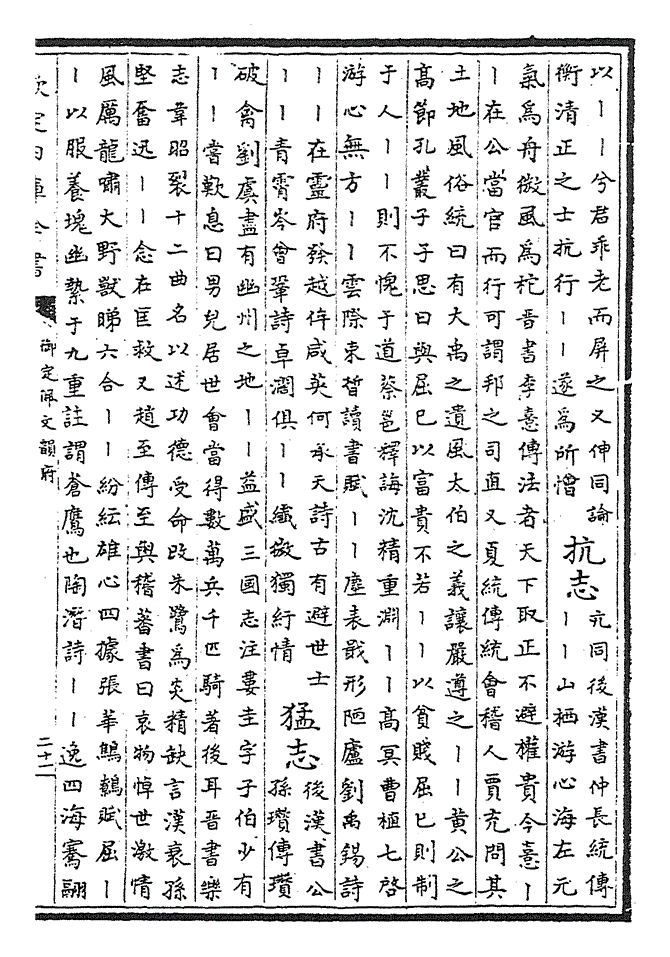 以丨丨兮君乖老而屏之又伸同論
衡清正之士抗行丨丨遂為所憎
抗志
亢同後漢書仲長統傳
丨丨山栖游心海左元
氣為舟微風為柂晉書李憙傳法者天下取正不避權貴今憙丨
丨在公當官而行可謂邦之司直又夏統傳統會稽人賈充問其
土地風俗統曰有大禹之遺風太伯之義讓嚴遵之丨丨黄公之
高節孔叢子子思曰與屈已以富貴不若丨丨以貧賤屈已則制
于人丨丨則不愧于道蔡邕釋誨沈精重淵丨丨高冥曹植七啓
游心無方丨丨雲際束晳讀書賦丨丨塵表戢形陋廬劉禹錫詩
丨丨在靈府發越侔咸英何承天詩古有避世士
丨丨青霄岑曾鞏詩卓濶俱丨丨纖微獨紆情
猛志
後漢書公
孫瓚傳瓚
破禽劉虞盡有幽州之地丨丨益盛三國志注婁圭字子伯少有
丨丨嘗歎息曰男兒居世會當得數萬兵千匹騎著後耳晉書樂
志韋昭裂十二曲名以述功德受命改朱鷺為炎精缺言漢衰孫
堅奮迅丨丨念在匡救又趙至傳至與嵇蕃書曰哀物悼世激情
風厲龍嘯大野獸睇六合丨丨紛紜雄心四據張華鷦鷯賦屈丨
丨以服養塊幽縶于九重註謂蒼鷹也陶潛詩丨丨逸四海騫翮
欽定四庫全書
御定佩文韻府
二十二